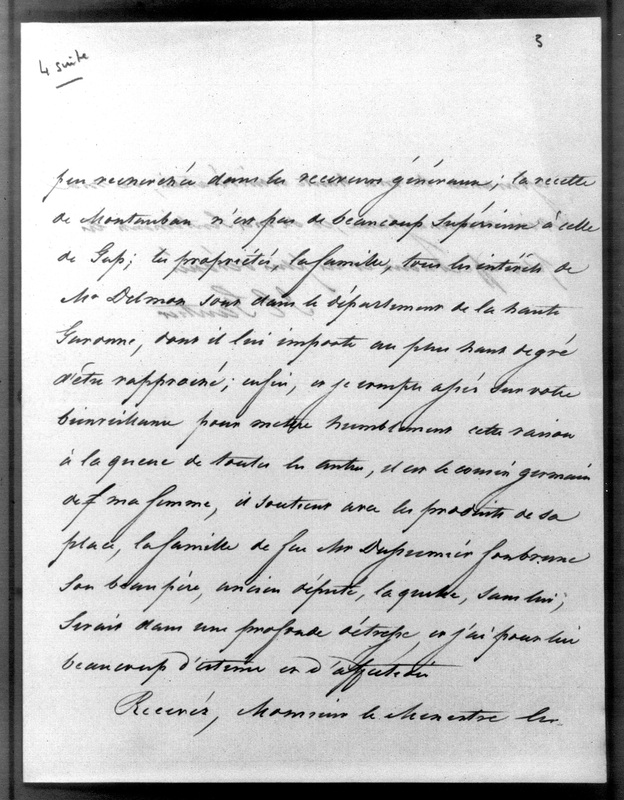 3
4 suite
peu recherchée dans les receveurs généraux; la recette
de Montauban n'est pas de beaucoup supérieure à celle
de Gap; les propriétés, la famille, tous les intérêts de
Mr Delmon sont dans le département de la haute
Garonne, dont il lui importe au plus haut degré
d'être rapproché; enfin, et je compte assés sur votre
bienveillance pour mettre humblement cette raison
à la queue de toutes les autres, il est le cousin germain
de ma femme, il soutient avec les produits de sa
place, la famille de feu Mr
son beau père, ancien député, laquelle, sans lui,
serait dans une profonde détresse, et j'ai pour lui
beaucoup d'estime et d'affection
Recevés, Monsieur le Ministre les